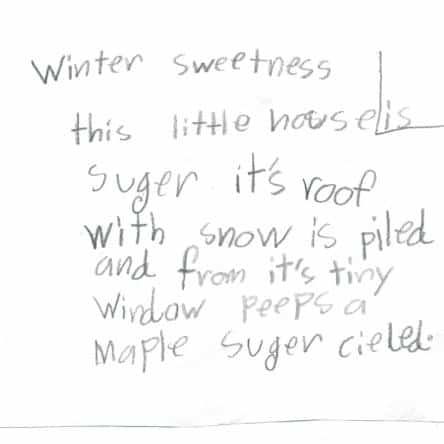 Winter sweetness
this little house is
suger it's roof
with snow is piled
and from it's tiny
window peeps a
Maple suger cieled.